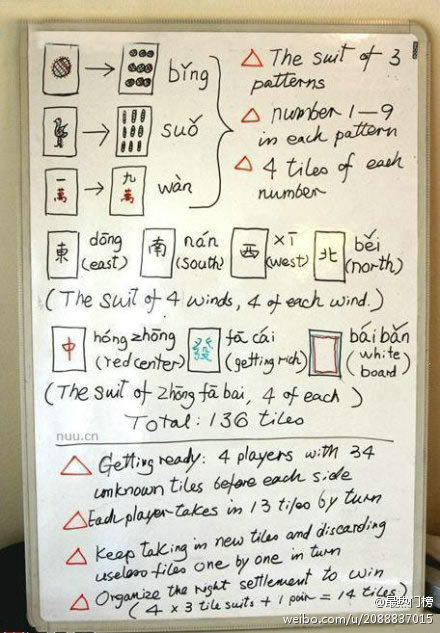 bǐng
suǒ
一萬 九萬 wàn
△ The suit of 3
patterns
△ number 1—9
in each pattern
△ 4 tiles of each
number
東 dōng (east) 南 nán (south) 西 xī (west) 北 běi (north)
(The suit of 4 winds, 4 of each wind.)
中 hóng zhōng (red center) 發 fā cái (getting rich) bái bǎn (white board)
(The suit of zhōng fā bai, 4 of each )
Total: 136 tiles
nuu.cn
△ Getting ready: 4 players with 34
unknown tiles before each side
△ Each player takes in 13 tiles by turn
△ Keep taking in new tiles and discarding
useless tiles one by one in turn
△ Organize the right settlement to win
( 4 x 3 tile suits + 1 pair = 14 tiles )
@最热门榜
weibo.com/u/2088837015